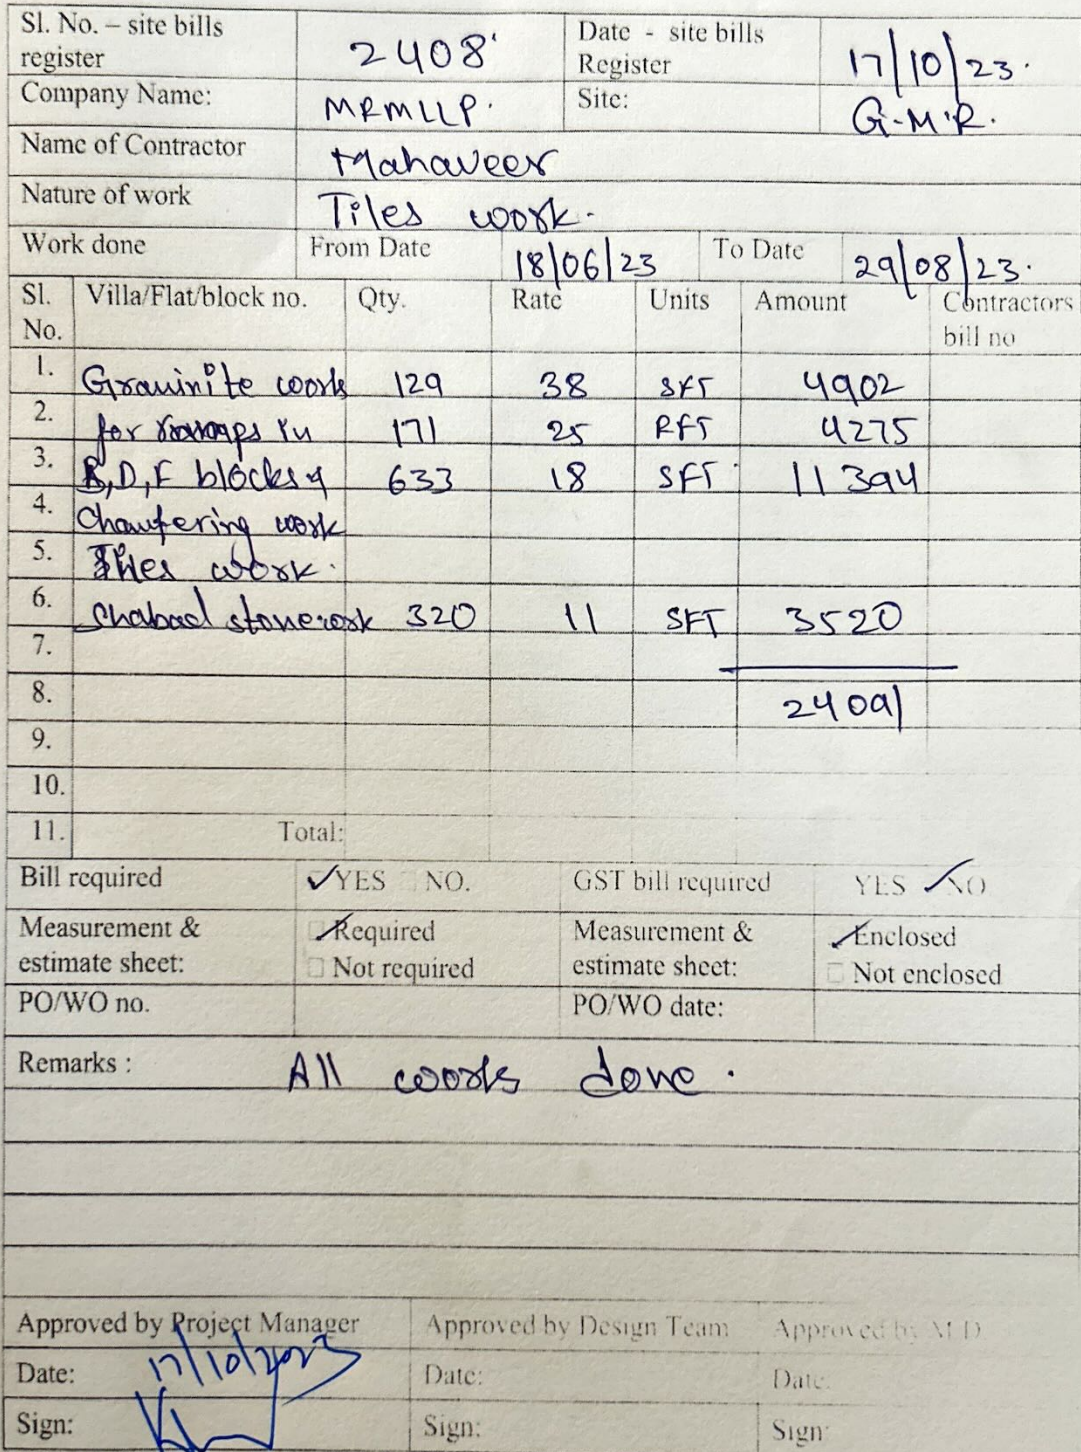 Sl. No. – site bills register 2408 Date - site bills Register 17/10/23.
Company Name: MRMLLP. Site: G.M.R.
Name of Contractor Mahaveer
Nature of work Tiles work.
Work done From Date 18/06/23 To Date 29/08/23.
Sl. No. Villa/Flat/block no. Qty. Rate Units Amount Contractors bill no
1. Graninite work 129 38 SFT 4902
2. for ramps in 171 25 RFT 4275
3. B,D,F blocks & 633 18 SFT 11394
4. Chamfering work
5. Tiles work.
6. Shabad stonework 320 11 SFT 3520
7.
8. 24091
9.
10.
11. Total:
Bill required YES NO. GST bill required YES NO
Measurement & estimate sheet: Required Not required Measurement & estimate sheet: Enclosed Not enclosed
PO/WO no. PO/WO date:
Remarks : All works done.
Approved by Project Manager Approved by Design Team Approved by M D
Date: 17/10/2023 Date: Date:
Sign: Sign: Sign: